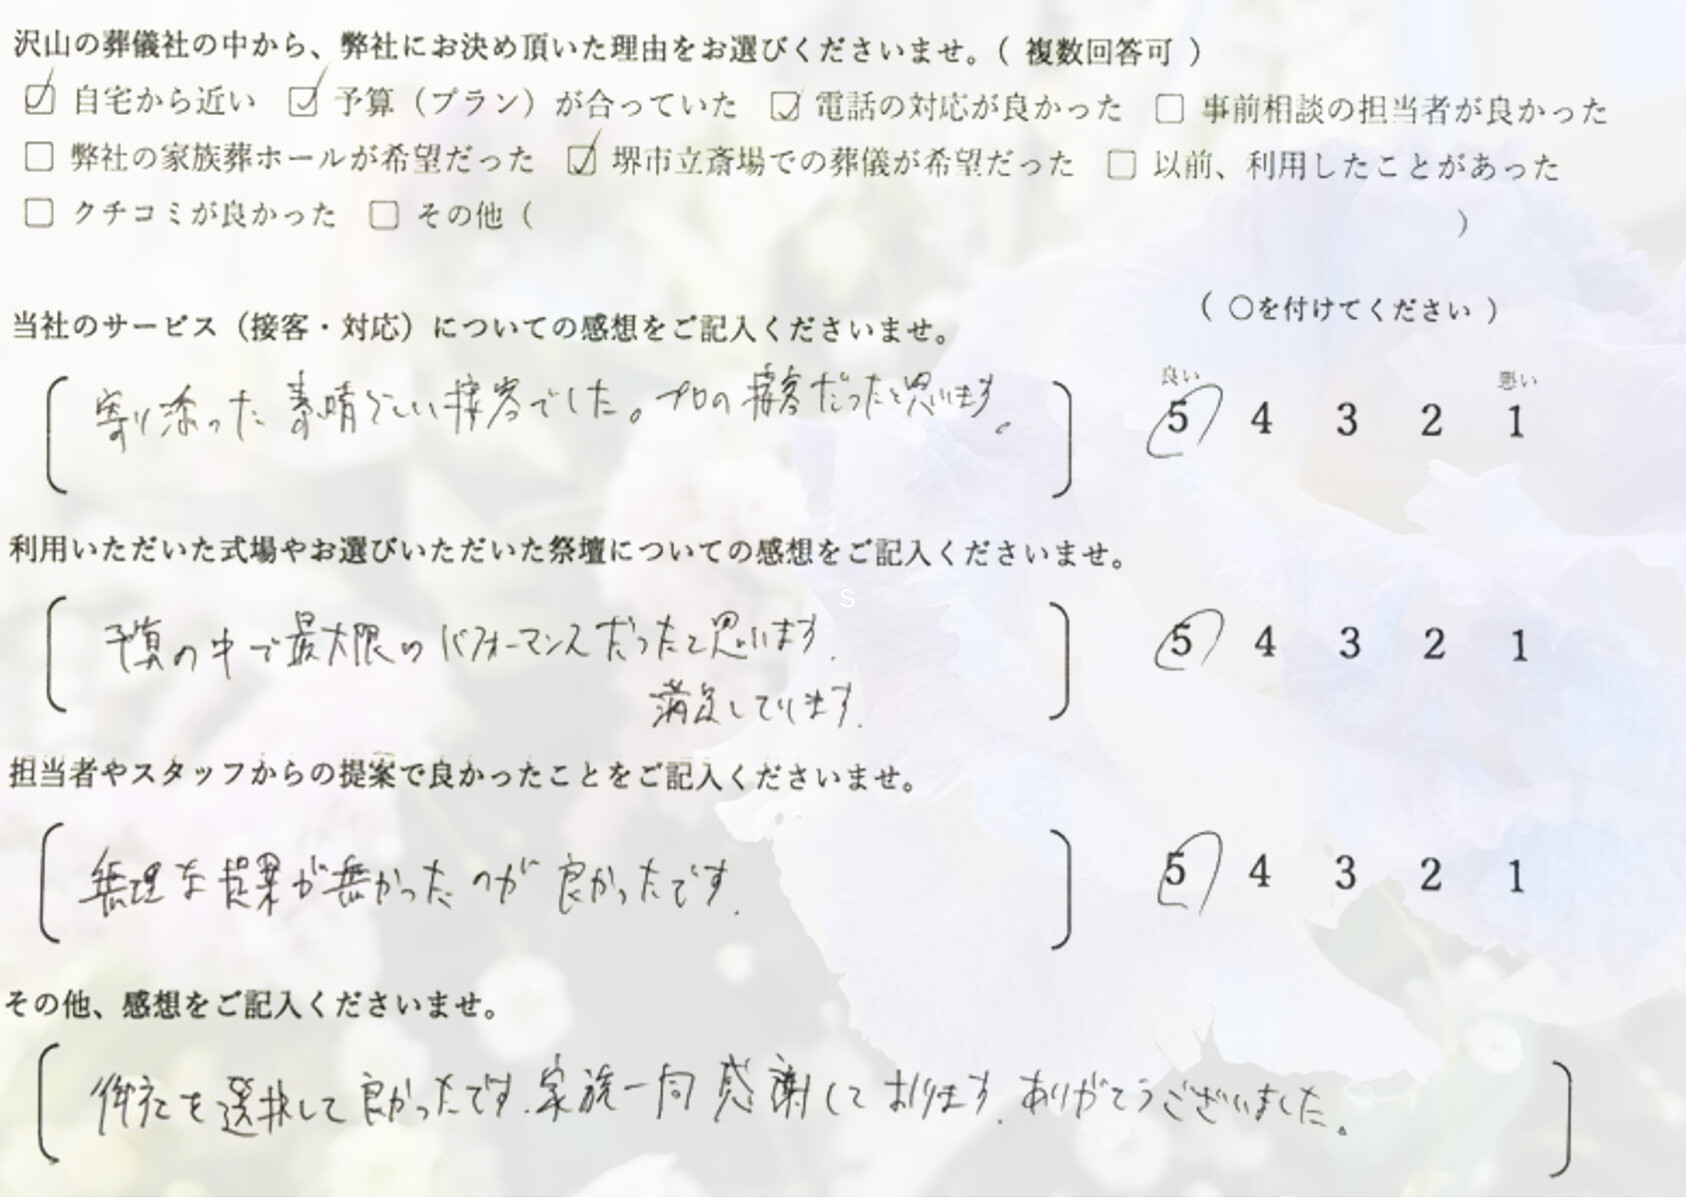 沢山の葬儀社の中から、弊社にお決め頂いた理由をお選びくださいませ。( 複数回答可 )
☑ 自宅から近い ☑ 予算（プラン）が合っていた ☑ 電話の対応が良かった □ 事前相談の担当者が良かった
□ 弊社の家族葬ホールが希望だった ☑ 堺市立斎場での葬儀が希望だった □ 以前、利用したことがあった
□ クチコミが良かった □ その他（ ）
（ ○を付けてください ）
当社のサービス（接客・対応）についての感想をご記入くださいませ。
良い 悪い
寄り添った素晴らしい接客でした。プロの接客だったと思います。
5 4 3 2 1
利用いただいた式場やお選びいただいた祭壇についての感想をご記入くださいませ。
S
予算の中で最大限のパフォーマンスだったと思います.
5 4 3 2 1
満足しています.
担当者やスタッフからの提案で良かったことをご記入くださいませ。
無理な提案が無かったのが良かったです.
5 4 3 2 1
その他、感想をご記入くださいませ。
を選択して良かったです.家族一同感謝しております.ありがとうございました。